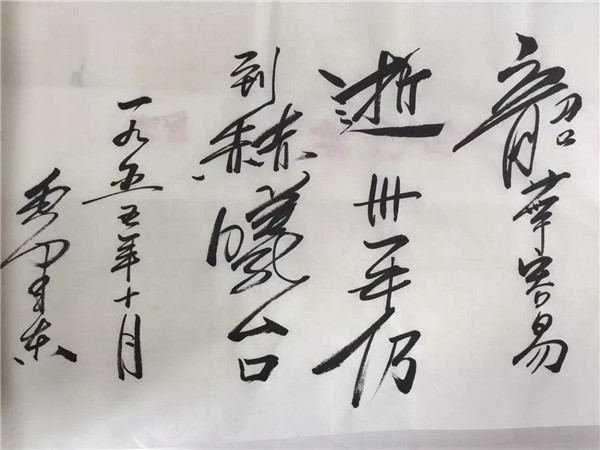 韶華容易
逝卅年仍
到赫曦台
一九五五年十月
毛泽东